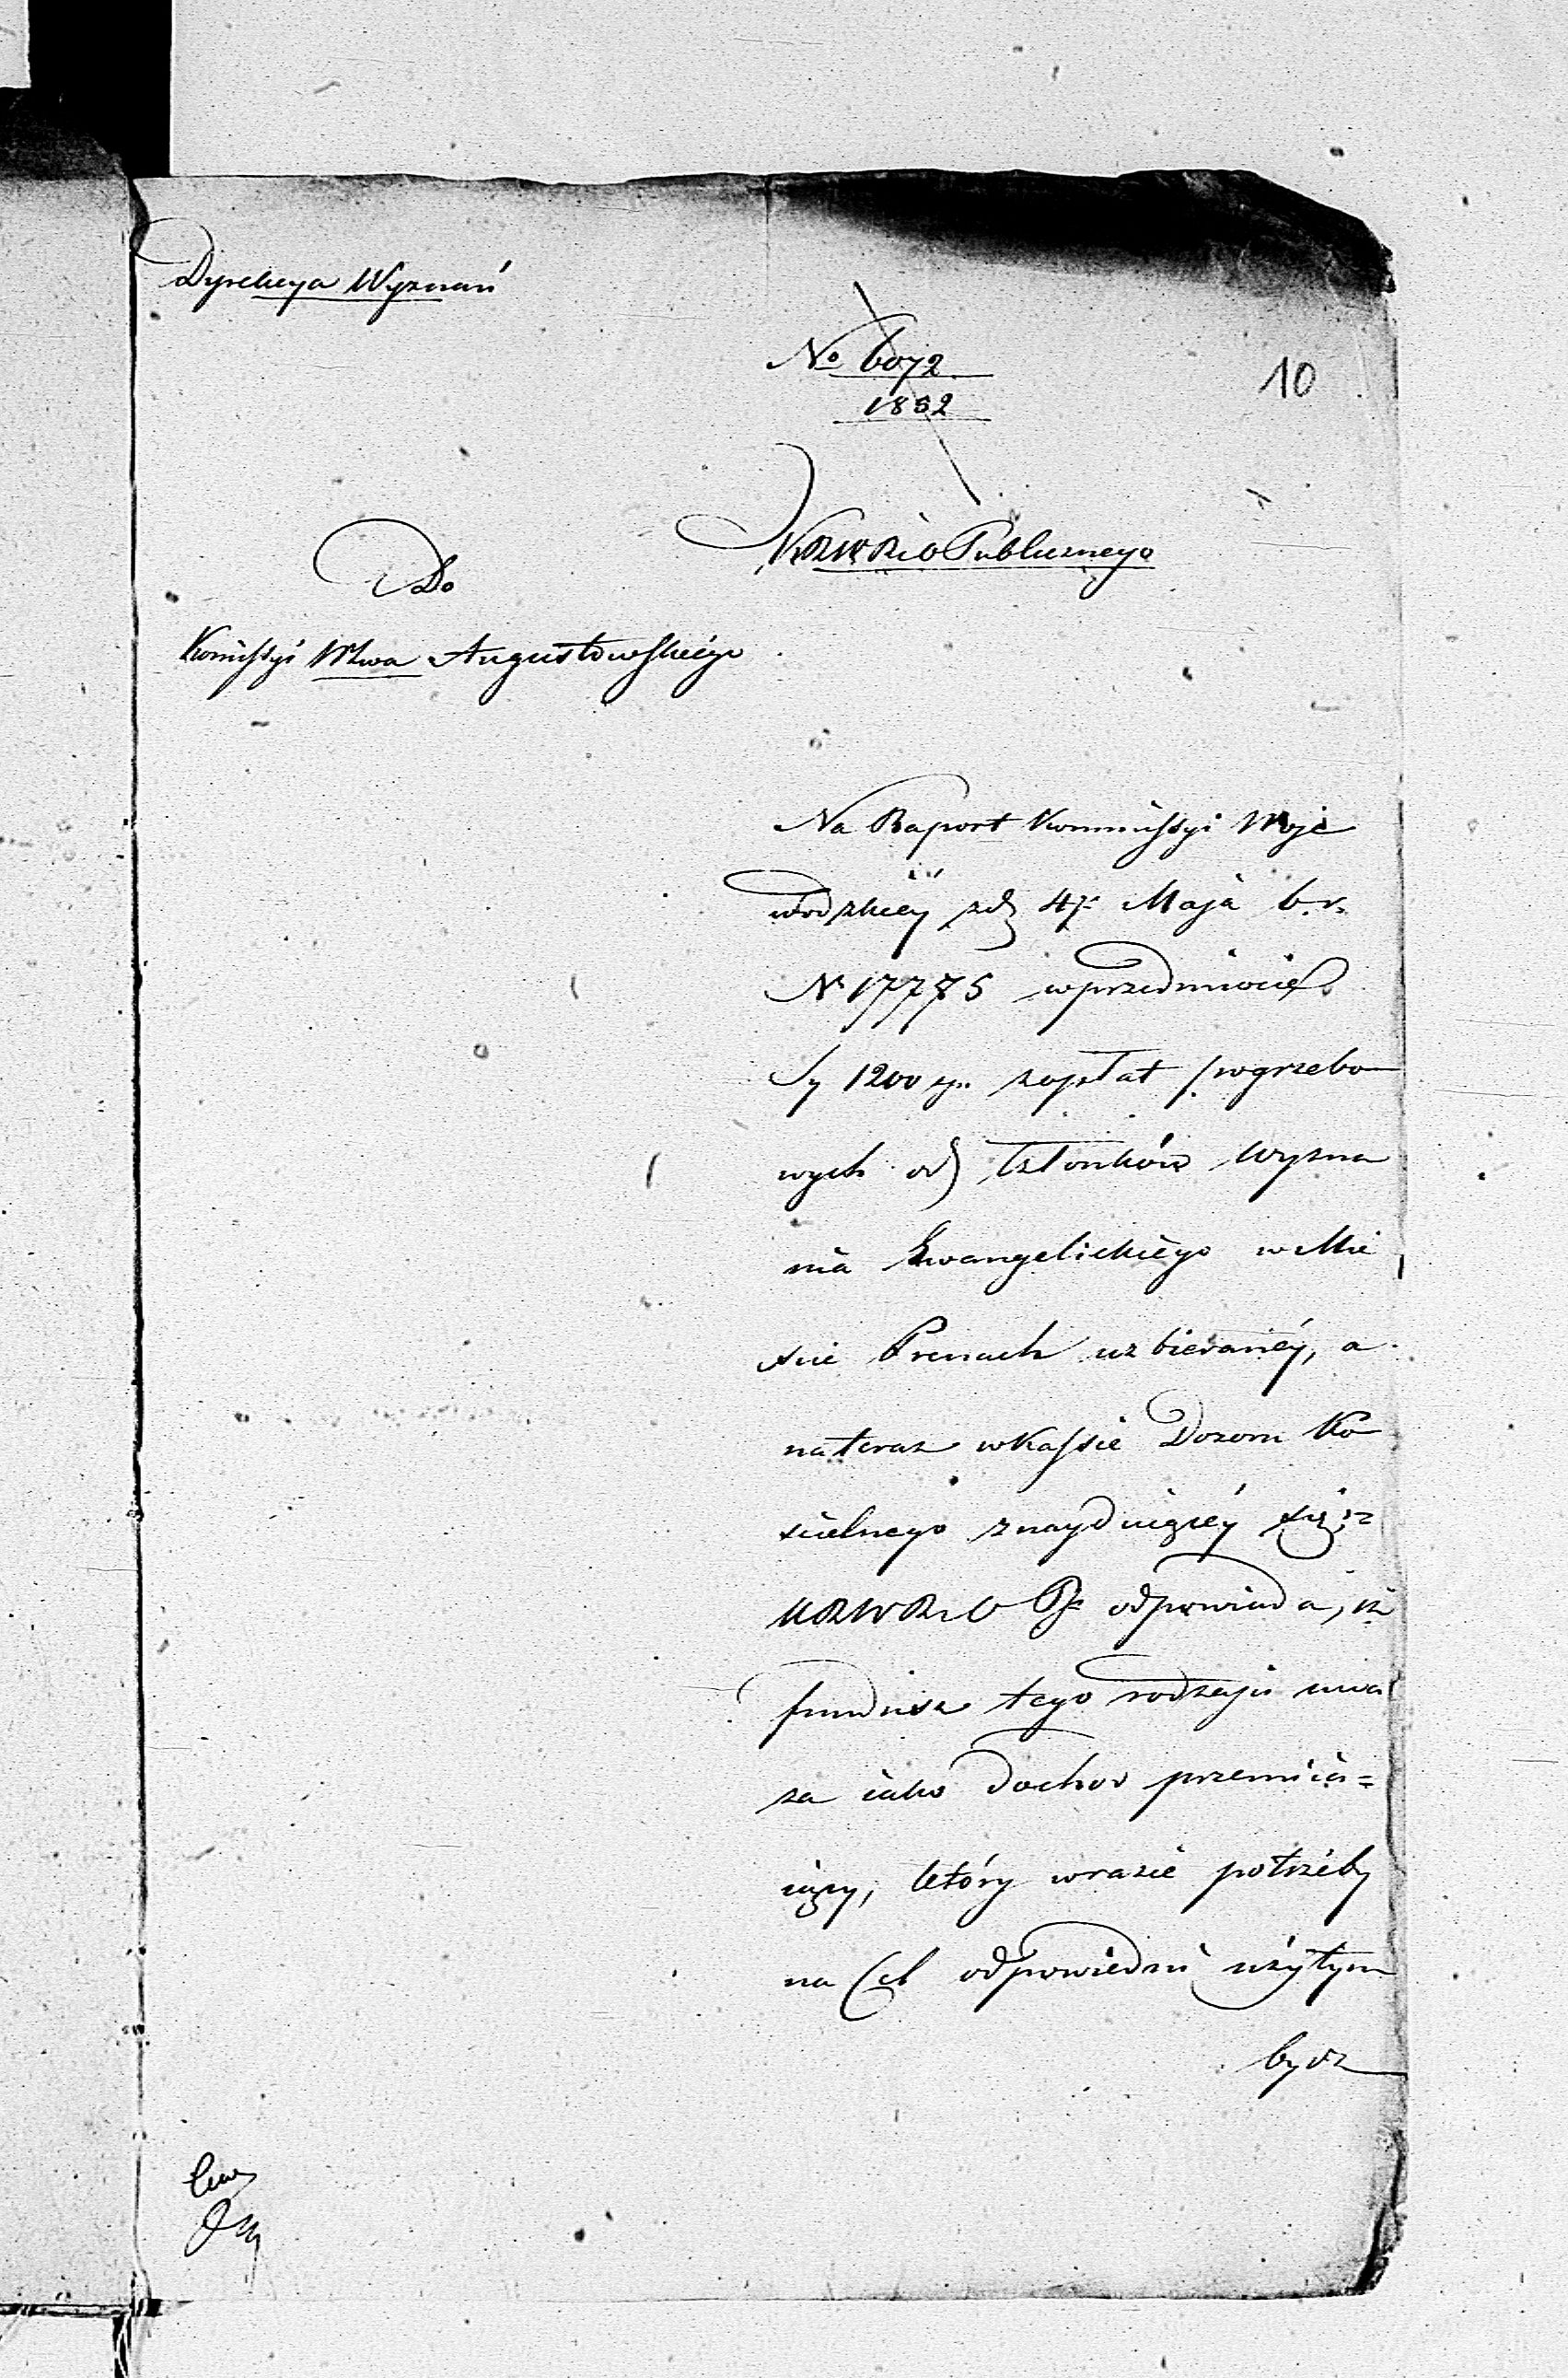 Dyrekcya Wyznań
No 6072
1832
10
KRWR i O Publicznego
Do
Kommissyi Wtwa Augustowskiego
Na Raport Kommissyi Woje
wodzkiey zd 4go Maja b.r.
N 17775 w przedmiocie
Sy 1200 zł. z opłat pogrzebo
wych od Członków Wyzna
nia Ewangelickiego w Mie
scie Prenach uzbieraney, a
na teraz w Kassie Dozoru Ko
scielnego znayduiącey się;=
KRWR i O P. odpowiada, iż
fundusz tego rodzaju uwa
za iako dochod przemiia=
iący, który w razie potrzeby
na Cel odpowiedni użytym
bydz